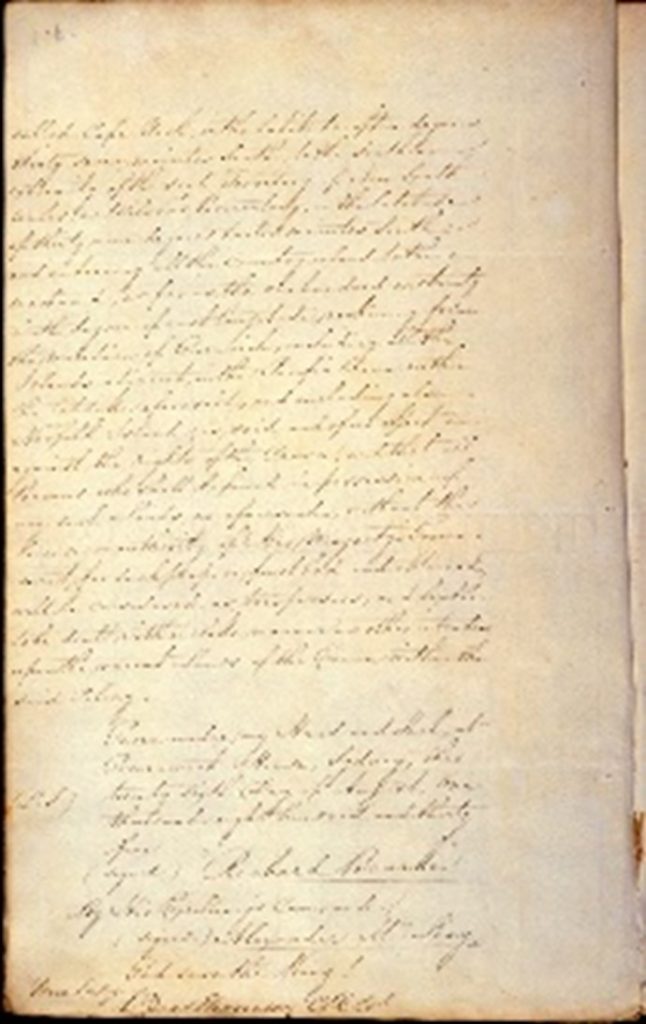 called Cape York, in the latitude of ten degrees
thirty seven minutes South, to the Southern
extremity of the said Territory of New South
Wales, or Wilson's Promontory, in the latitude
of thirty nine degrees twelve minutes South
and embracing all the Country inland to the
westward, as far as the one hundred and twenty
ninth degree of east longitude, reckoning from
the meridian of Greenwich, including all the
Islands adjacent, in the Pacific Ocean within
the latitude aforesaid, and including also
Norfolk Island, is void and of no effect
against the rights of the Crown; and that all
Persons who shall be found in possession of
any such Lands as aforesaid, without the
License or authority of His Majesty's Govern-
ment, for such purpose, first had and obtained,
will be considered as trespassers, and liable
to be dealt with in like manner as other intruders
upon the vacant Lands of the Crown within the
said Colony.
Given under my Hand and Seal, at
Government House, Sydney, this
twenty sixth Day of August, One
thousand eight hundred and thirty
five
(L.S.)
(signed) Richard Bourke
By His Excellency's Command
(signed) Alexander McLeay
God save the King!